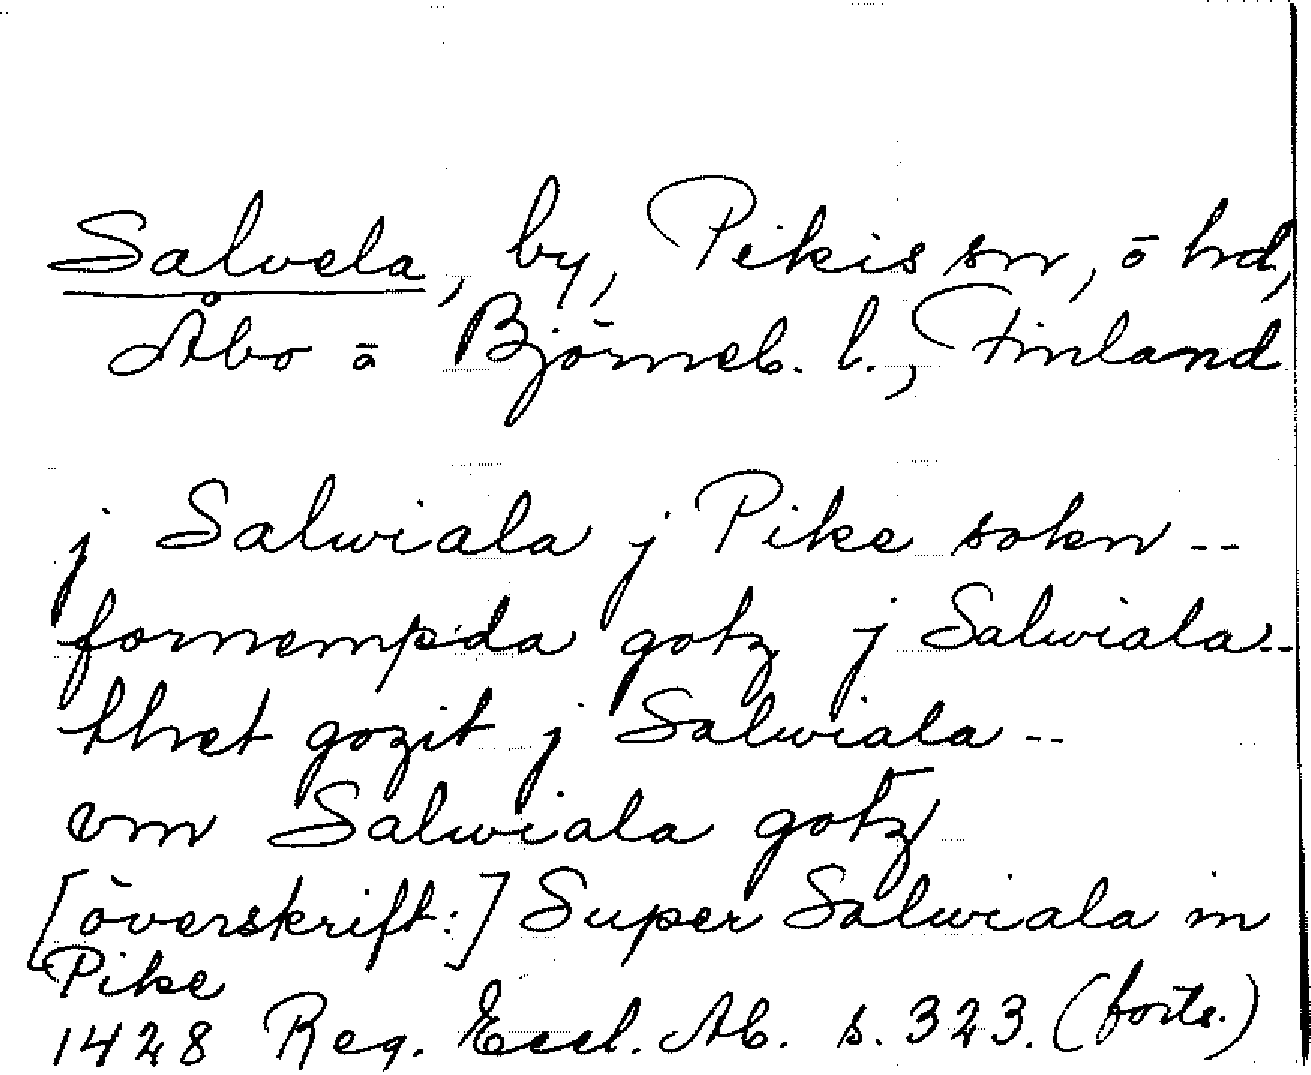 Salvela, by, Pikis sn, ö hd,
Åbo ö Björneb. l., Finland
j Salwiala j Pike sokn --
fornempda gotz j Salwiala --
thet gozit j Salwiala --
vm Salwiala gotz
[överskrift:] Super Salwiala in
Pike
1428 Reg. Eccl. Ab. s. 323. (forts.)